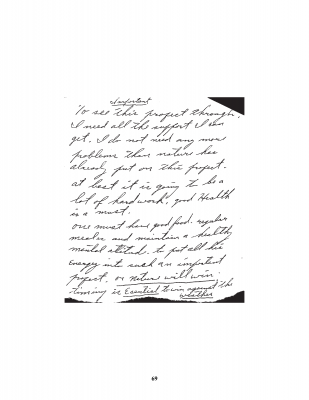 Important
To see this project through,
I need all the support I can
get. I do not need any more
problems than nature has
already put on this project.
at best it is going to be a
lot of hard work. good Health
is a must.
one must have good food. regular
meals and maintain a healthy
mental attitud. to put all his
Energy into such an important
project. or Nature will win.
timing is Esential to win against the
weather
69